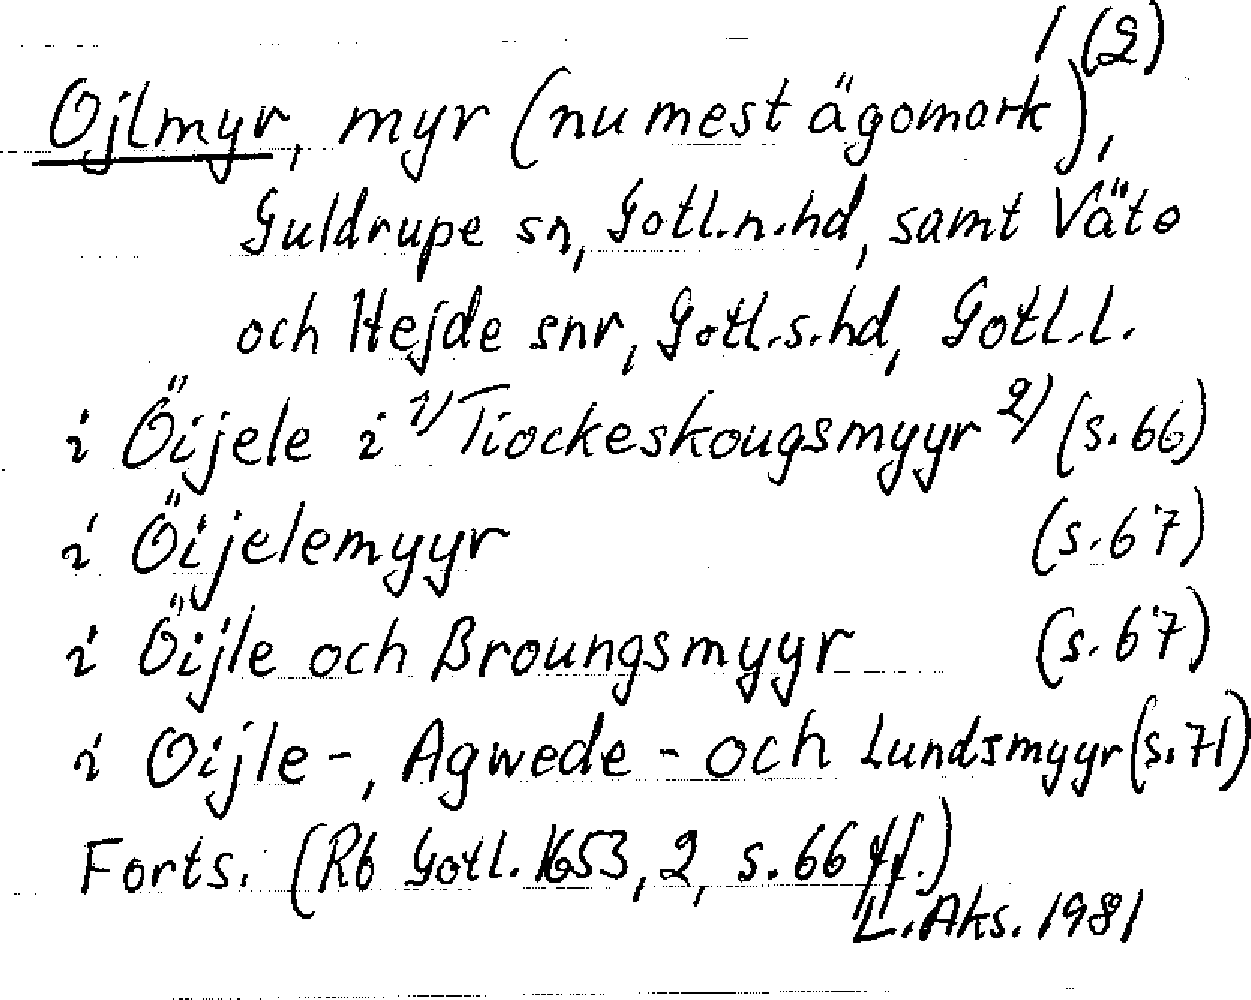 1 (2)
Ojlmyr, myr (nu mest ägomark),
Guldrupe sn, Gotl.n.hd, samt Väte
och Hejde snr, Gotl.s.hd, Gotl.l.
i Öijele i 1) Tiockeskougsmyyr 2) (s.66)
i Öijelemyyr (s.67)
i Öijle och Broungsmyyr (s.67)
i Oijle-, Agwede- och Lundsmyyr (s.71)
Forts. (Rb Gotl. 1653, 2, s. 66 ff.)
L. Aks. 1981